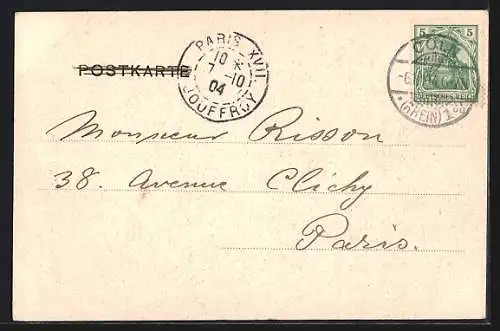 POSTKARTE
PARIS XVII
10 *
7-10
04
JOUFFROY
5 5
CÖLN
DEUTSCHES REICH
*(RHEIN)1
Monsieur Risson
38. Avenue Clichy
Paris.